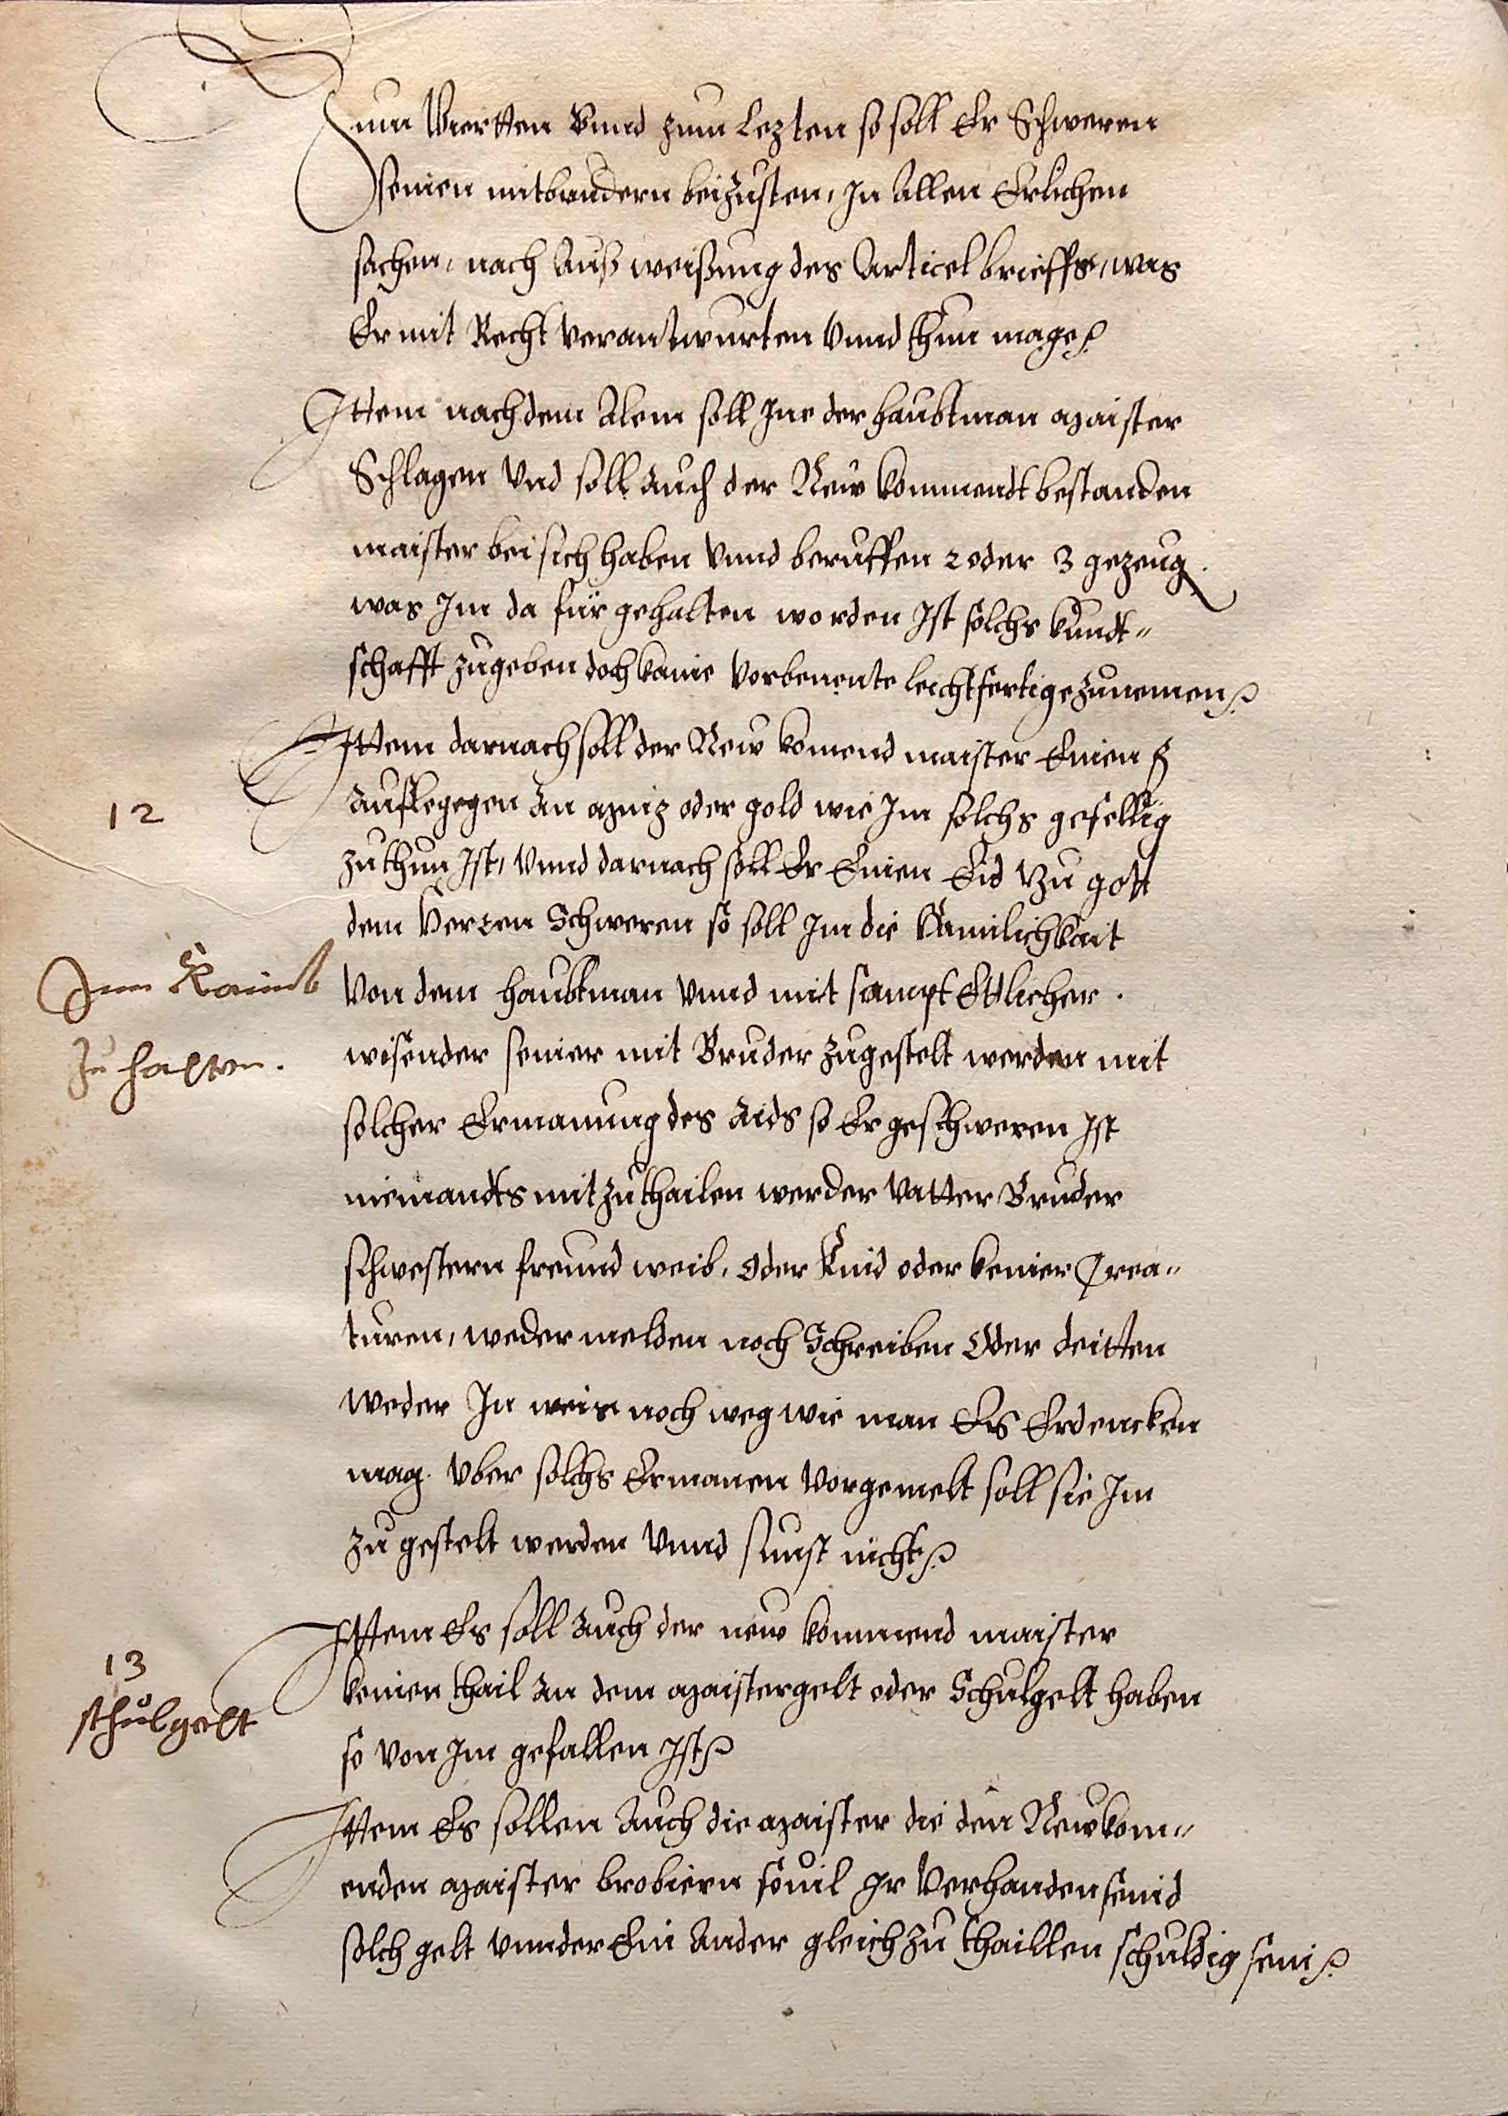 Zum Viertten Vnnd zum Lezten so soll Er Schweren
seinen mitbruedern beizusten, In Allen Erlichen
sachen, nach Auß weißung des Articel brieffs, was
Er mit Recht Verantwurten Vnnd thun mage
Ittem nach dem Alem soll Ine der haubtman maister
Schlagen Vnd soll Auch der New kommendt bestanden
maister bei sich haben Vnnd beruffen 2 oder 3 gezeug
was Im da für gehalten worden Ist solchs kundt„
schafft zugeben doch kaine Vorbenente leichtfertige zunemen
Ittem darnach soll der New komend maister Einen
12
Auflegegen An mÿnz oder gold wie Im solchs gefellig
zuthun Ist, Vnnd darnach soll Er Einen Eid Zu gott
dem Herren Schweren so soll Im die Haimlichkait
Von dem haubtman Vnnd mit sampt Ettlicher
zu halten.
wisender seiner mit Bruder zugestelt werden mit
solcher Ermanung des Aids so Er geschweren Ist
niemandts mitzuthailen werder Vatter Bruder
schwestern freund weib, oder Kind oder keiner Crea„
turen, weder melden noch Schreiben Oder deitten
weder In weis noch weg wie man Es Erdencken
mag. Vber solchs Ermanen Vorgemelt soll sie Im
zu gestelt werden Vnnd sunst nicht
Ittem Es soll Auch der new kommend maister
13
keinen thail An dem maistergelt oder Schulgelt haben
schulgelt
so Von Im gefallen Ist
Ittem Es sollen Auch die maister die den New kom„
enden maister brobiern souil Ir Verhanden seind
solch gelt Vnnder Ein Ander gleich zu thaillen schuldig sein